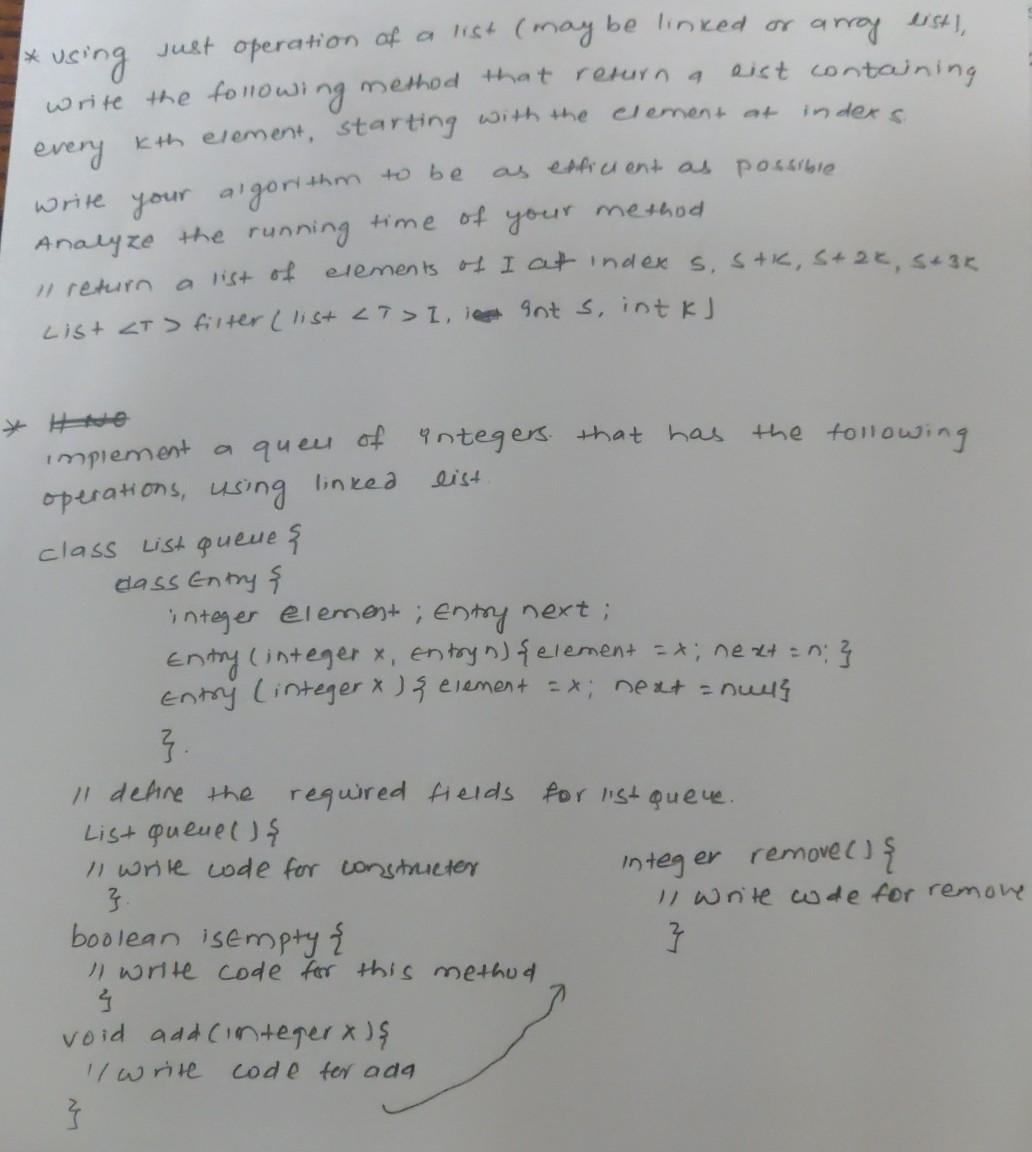 * Using Just operation of a list (may be linked or array list),
write the following method that return a list containing
every kth element, starting with the element at index s
write your algorithm to be as efficient as possible
Analyze the running time of your method
// return a list of elements of I at index s, s+k, s+2k, s+3k
List <T> filter (list <T> I, int s, int k)
*
implement a queu of integers that has the following
operations, using linked list.
class List queue {
class Entry {
integer element ; Entry next ;
Entry (integer x, entry n) { element = x; next = n; }
Entry (integer x) { element = x; next = null}
}.
// define the required fields for list queue.
List queue() {
// write code for constructer
}.
boolean isEmpty {
// write code for this method
}
void add (integer x) {
// write code for add
}
integer remove() {
// write code for remove
}